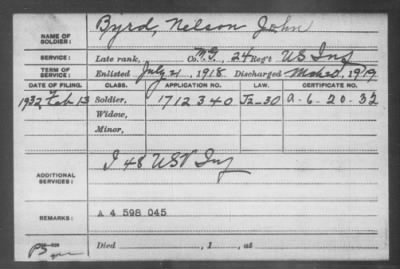 NAME OF SOLDIER: Byrd, Nelson John
SERVICE: Late rank, Co. M.G., 24 Reg't US Inf
TERM OF SERVICE: Enlisted July 21, 1918. Discharged Mch 20, 1919
DATE OF FILING. CLASS. APPLICATION NO. LAW. CERTIFICATE NO.
1932 Feb 13 Soldier, 1712340 J2-30 A-6-20-32
Widow,
Minor,
ADDITIONAL SERVICES: I 48 USV Inf
REMARKS: A 4 598 045
Died , 1 , at